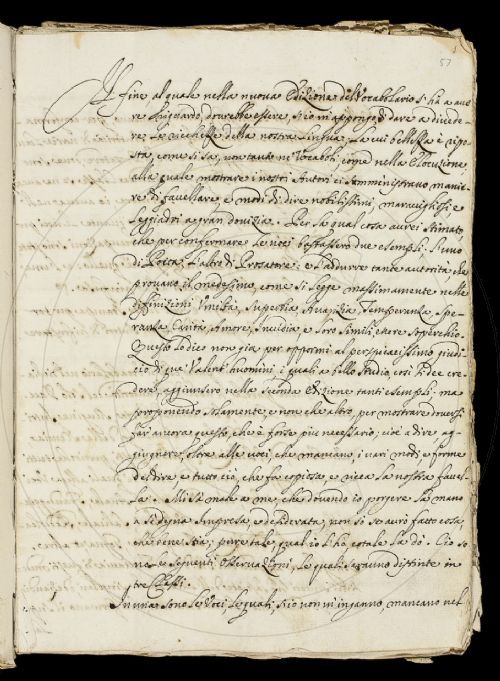 53
Il fine, al quale nella nuova Edizione del Vocabolario si ha a ave
re sguardo, dourebbe essere, s'io m'appongo, di dare a divede
re le ricchezze della nostra lingua, la cui bellezza è ripo
sta, come si sa, non tanto ne' Vocaboli, come nella Elocuzione
alla quale mostrare i nostri Autori ci somministrano, manie
re di favellare, e modi di dire nobilissimi, maravigliosi, e
leggiadri a gran dovizia. Per la qual cosa aurei stimato,
che per confermare le voci bastassero due esempli. L'uno
di Poeta, l'altro di Prosatore, e l'addurre tante autorità, che
provano il medesimo, come si legge massimamente nelle
diffinizioni Umiltà, Superbia, Avarizia, Temperanza, Spe
ranza, Carità, Amore, Invidia, e loro simili, essere soperchio.
Questo lo dico non già per oppormi al perspicacissimo giudi
cio di que' Valent'huomini, i quali a bello studio, così si dee cre
dere, aggiunsero nella seconda Edizione tanti esempli: ma
proponendo solamente, e non che altro, per mostrare doversi
far ancora questo, che è forse più necessario, cioè a dire ag
giugnere, oltre alle voci, che mancano, i vari modi, e forme
del dire, e tutto ciò, che fa copiosa, e ricca la nostra favel
la. Mi sà male a me, che dovendo io porgere la mano
a sì degna Impresa, e desiderata, non so se aurò fatto cosa,
che bene stia; pure tale, qual io l'ho, cotale la do. Ciò so
no le seguenti Osservazioni, le quali saranno distinte in
tre Classi.
In una sono le Voci, le quali, s'io non m'inganno, mancano nel